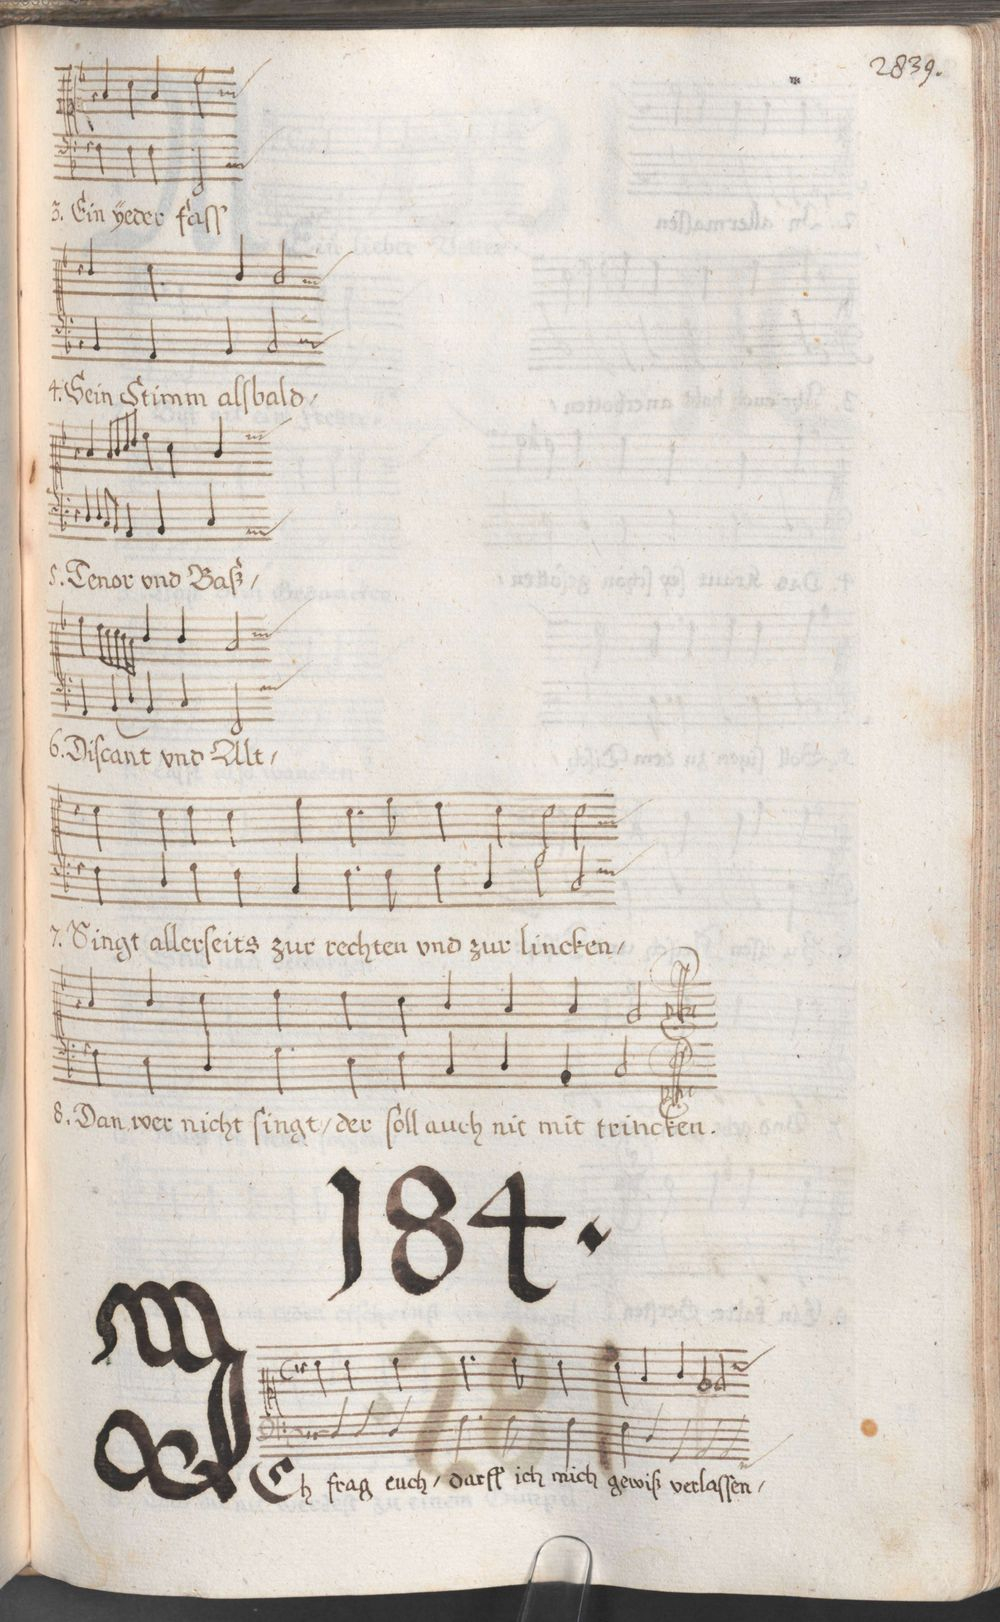 2839.
3. Ein ÿeder fass
4. Sein Stimm alsbald /
5. Tenor vnd Baß /
6. Discant vnd Alt /
7. Singt allerseits zur rechten vnd zur lincken /
8. Dan wer nicht singt / der soll auch nit mit trincken.
184.
Ich frag euch / darff ich mich gewiß verlassen /